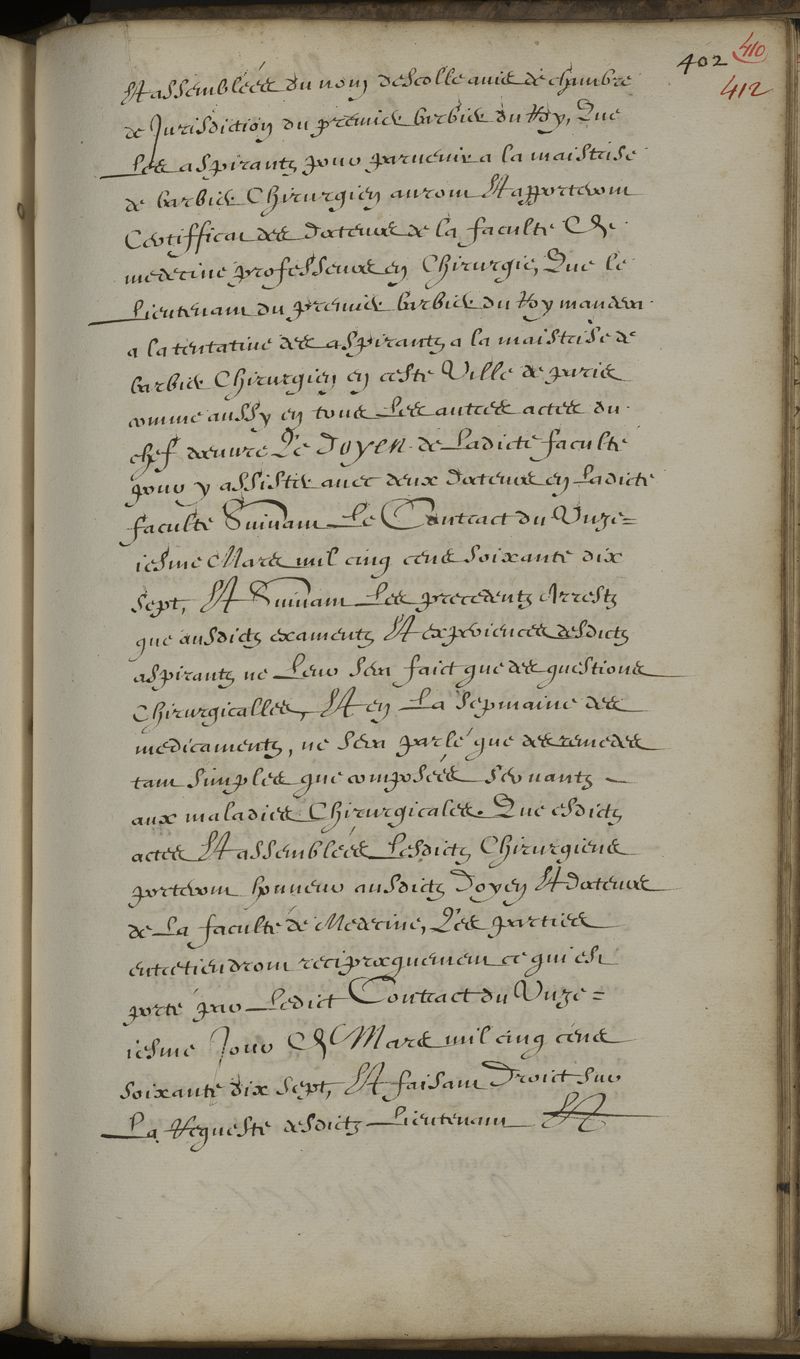 402 410
412
Et assemblées du nom descolle avis de chambre
de Jurisdiction du premier barbier du Roy, Que
Les aspirantz pour parvenir a la maistrise
de barbier Chirurgien auront Et apporteront
Certifficat des docteurs de la faculté de
medecine professeurs en Chirurgie, Que le
Lieutenant du premier barbier du Roy mandera
a la tentative des aspirantz a la maistrise de
barbier Chirurgien en ceste Ville de paris
comme aussy en tous Les autres actes du
chef dœuvre Le Doyen de Ladicte faculté
pour y assister avec deux docteurs en Ladicte
faculté Suivant Le Contract du Unze=
iesme Mars mil cinq cens soixante dix
sept, Et Suivant Les precedentz Arrestz
que ausdictz examentz Et experiences desdictz
aspirantz ne Leur sera faict que des questions
Chirurgicalles, Et en La sepmaine des
medicamentz, ne sera parlé que des remedes
tant simples que composées servantz
aux maladies Chirurgicales. Que esdictz
actes Et assemblées Lesdictz Chirurgiens
porteront honneur ausdictz Doyen Et docteurs
de La faculté de Medecine, Les parties
entretiendront reciproquement ce qui est
porté par Ledict Contract du Unze=
iesme Jour de Mars mil cinq cens
soixante dix sept, Et faisant Droict sur
La Requeste desdictz Lieutenant Et